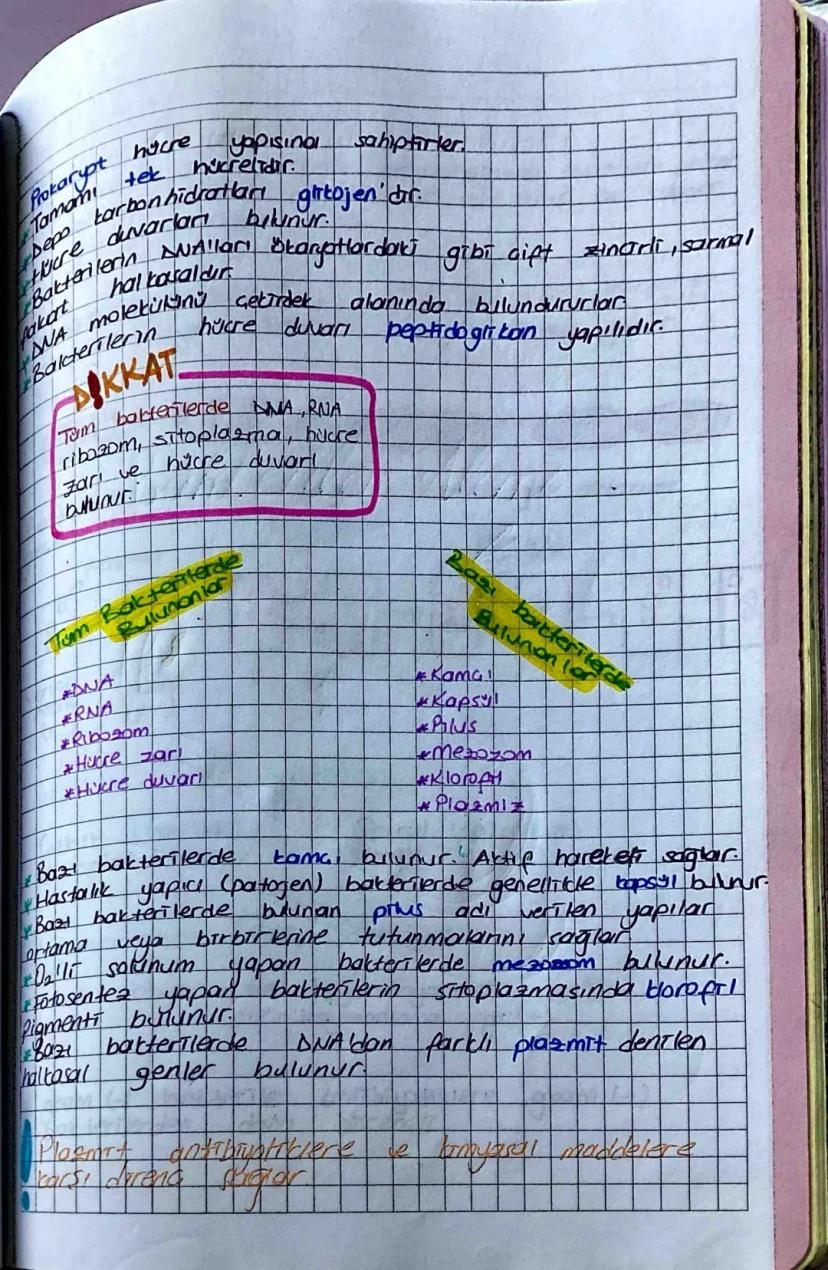 Prokaryot hücre yapısına sahiptirler.
* Tamamı tek hücrelidir.
* Depo karbonhidratları glikojen'dir.
* Hücre duvarları bulunur.
* Bakterilerin DNA'ları ökaryotlardaki gibi çift zincirli, sarmal
fakat halkasaldır.
* DNA molekülünü çekirdek alanında bulundururlar
* Bakterilerin hücre duvarı peptidoglikan yapılıdır.
DİKKAT
Tüm bakterilerde DNA, RNA
ribozom, sitoplazma, hücre
zarı ve hücre duvarı
bulunur.
Tüm Bakterilerde
Bulunanlar
* DNA
* RNA
* Ribozom
* Hücre zarı
* Hücre duvarı
Bazı bakterilerde
Bulunanlar
* Kamçı
* Kapsül
* Pilus
* Mezozom
* Klorofil
* Plazmit
* Bazı bakterilerde kamçı bulunur. Aktif hareketi sağlar.
* Hastalık yapıcı (patojen) bakterilerde genellikle kapsül bulunur.
* Bazı bakterilerde bulunan pilus adı verilen yapılar
ortama veya birbirlerine tutunmalarını sağlar
* O₂'li solunum yapan bakterilerde mezozom bulunur.
* Fotosentez yapan bakterilerin sitoplazmasında klorofil
pigmenti bulunur.
* Bazı bakterilerde DNA'dan farklı plazmit denilen
halkasal genler bulunur.
! Plazmit antibiyotiklere ve kimyasal maddelere
karşı direnç sağlar